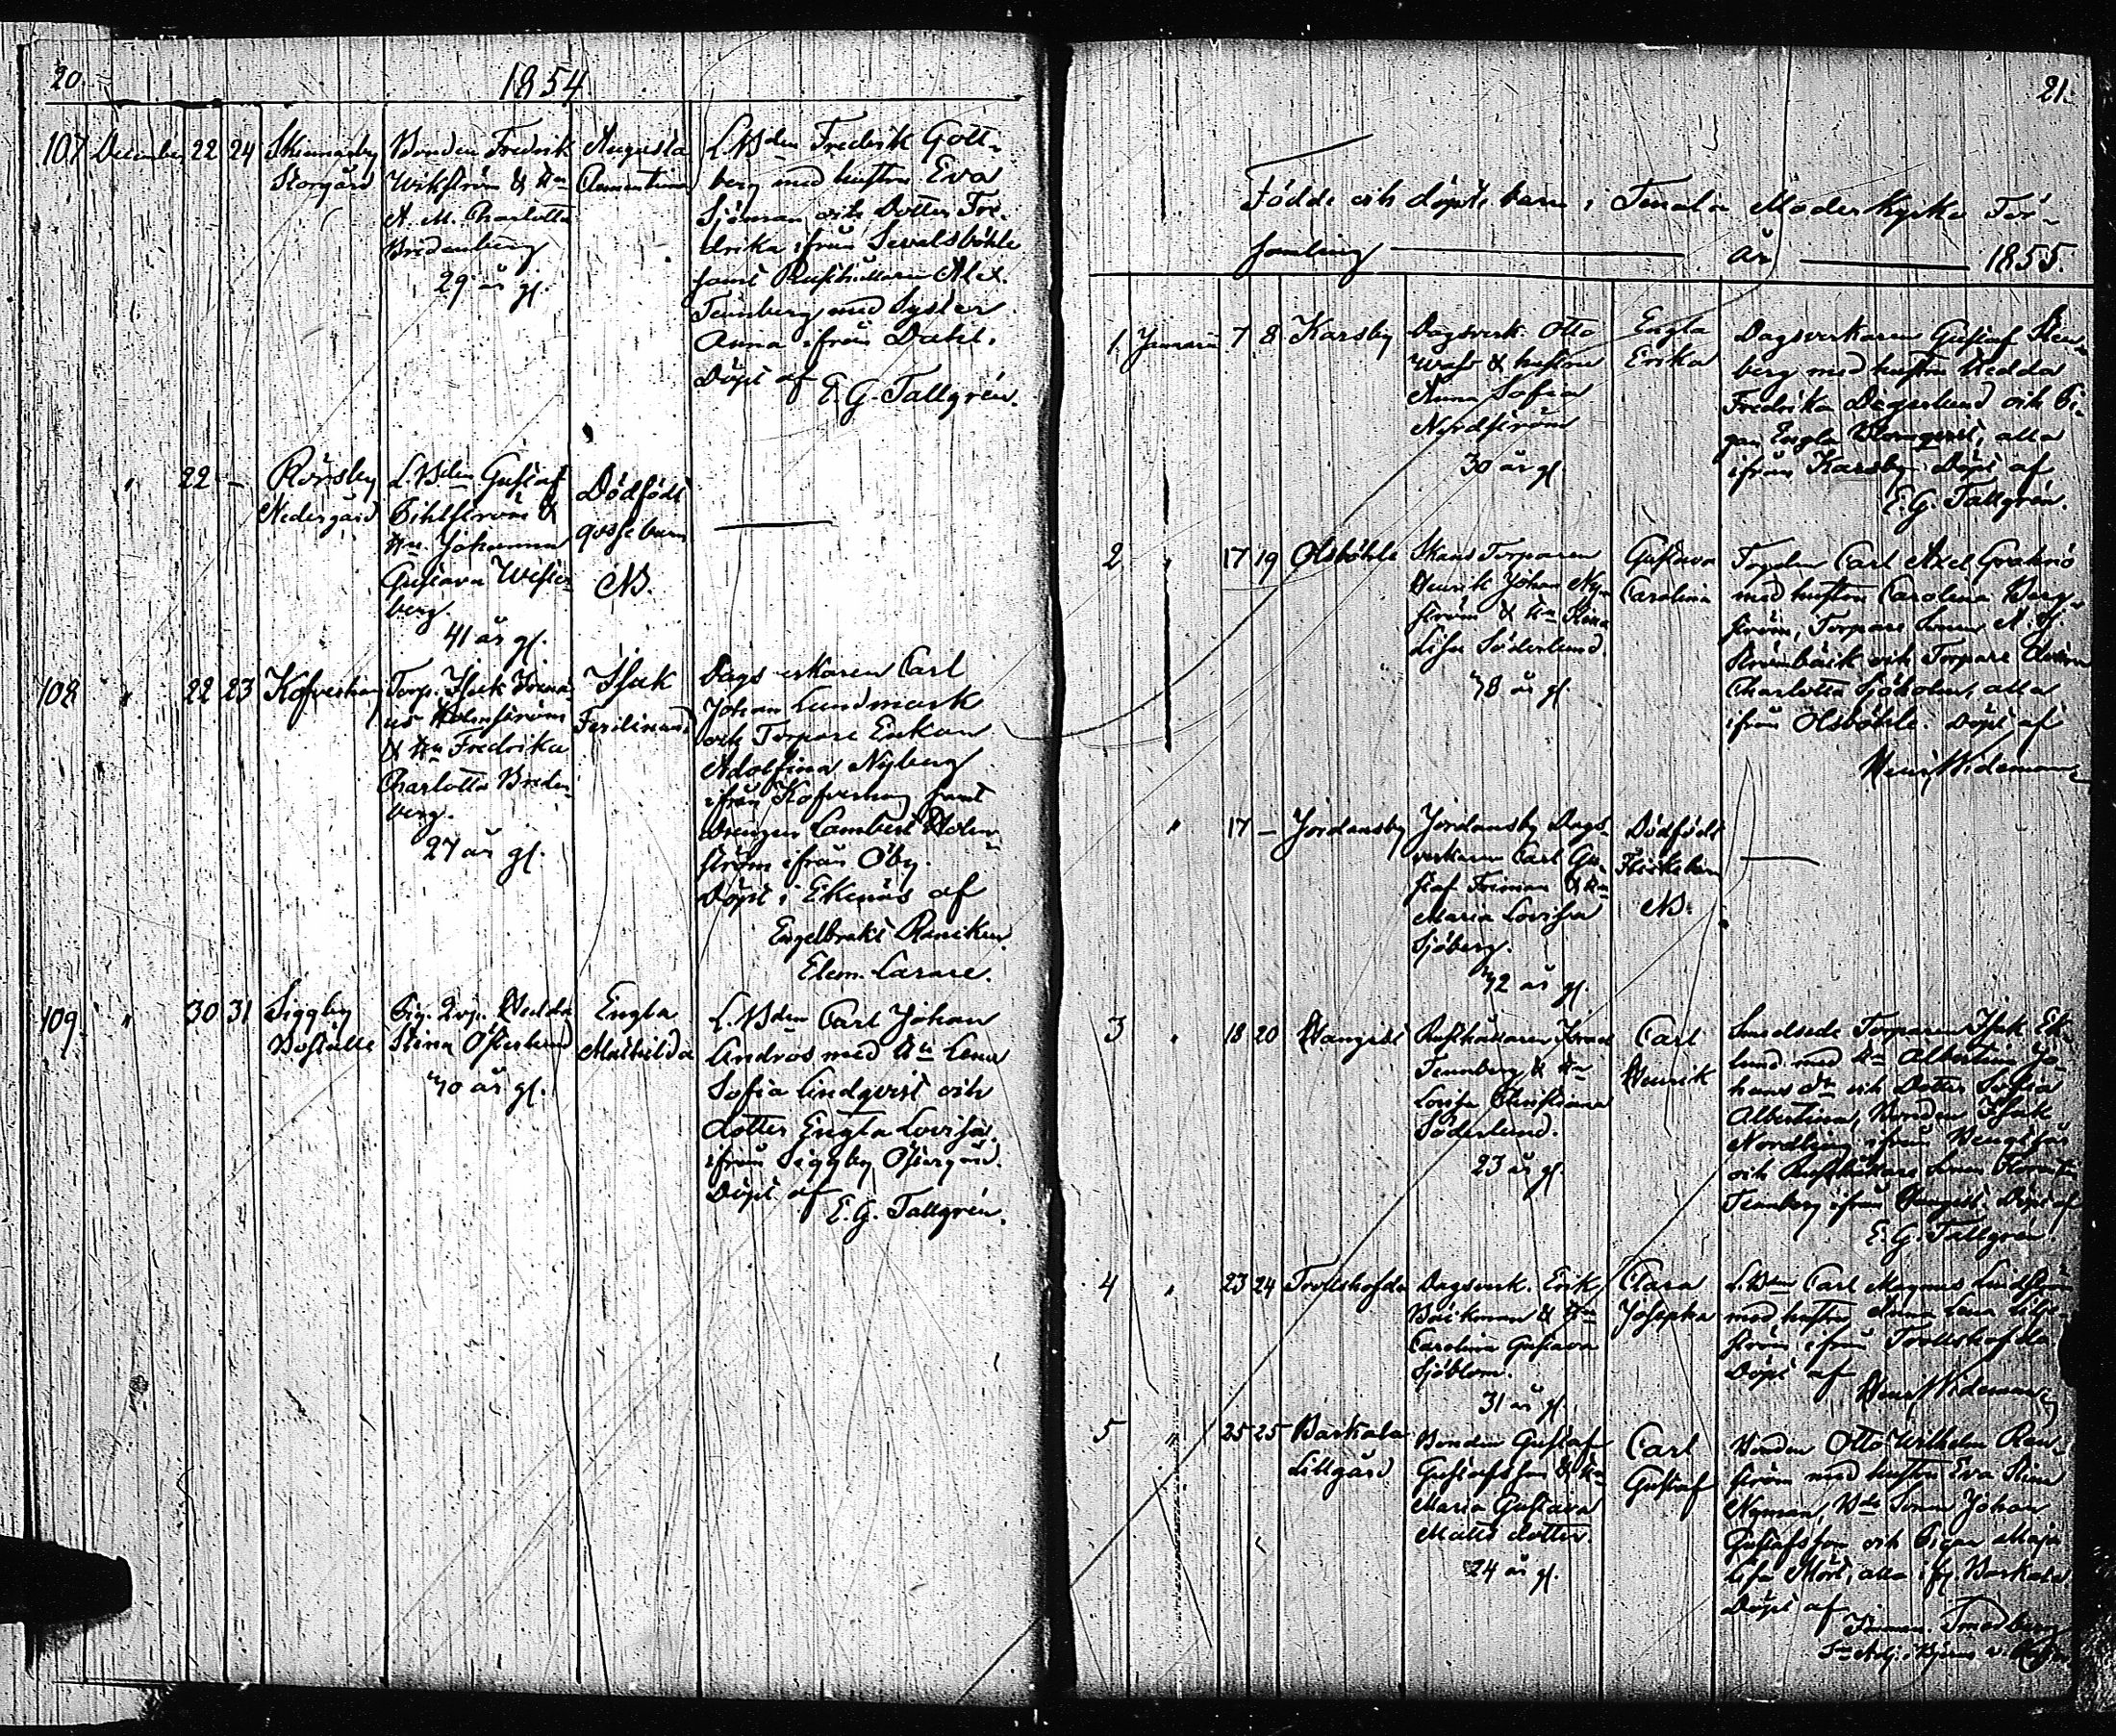 20.
1854
107 December 22 24
Skinnarby
Storgård
Bonden Fredrik
Wikström & Hn
A. M. Charlotta
Bredenberg
29 år gl.
Augusta
Clementina
L.Bden Frederik Gott-
berg med hustru Eva
Sjöman och Dotter Fre-
drika ifrån Sevalsböhle
samt Rusthållaren Alex.
Tennberg med Syster
Anna ifrån Dahl.
Döpt af E. G. Tallgrén.
" 22 —
Rörsby
Nedergård
L.Bden Gustaf
Pihlström &
Hn. Johanna
Gustava Wester-
berg.
41 år gl.
Dödfödt
gossebarn
NB.
108 " 22 23
Torp. Isak
Holmström
& Hn Fredrika
Charlotta Breden-
berg.
27 år gl.
Isak
Ferdinand
Dagsverkaren Carl
Johan Lundmark
och Torpare Enkan
Adolfina Nyberg
ifrån samt
Drengen Lambert Holm-
ström ifrån Öby.
Döpt i Ekenäs af
Engelbrekt Rancken.
Elem. Lärare.
109 " 30 31
Siggby
Boställe
Pig. 2vj. Hedda
Stina Österlund
40 år gl.
Engla
Mathilda
L.Bden Carl Johan
Andros med Hu Lena
Sofia Lindqvist och
dotter Engla Lovisa
ifrån Siggby Östergård.
Döpt af E. G. Tallgrén.
21.
Födde och döpte barn i Tenala Moderkyrko För-
samling — år — 1855.
1 Januari 7 8 Karsby
Dagsverk. Otto
& hustru
Anna Sofia
Nordström
30 år gl.
Engla
Erika
Dagsverkaren Gustaf Sten-
berg med hustru Hedda
Fredrika Degerlund och Pi-
gan Engla Blomqvist, alla
ifrån Karsby. Döpt af
E. G. Tallgrén.
2 " 17 19 Olsböhle
Skans Torparen
Henrik Johan Ny-
ström & Hn Stina
Lisa Söderlund.
48 år gl.
Gustava
Carolina
Carl Axel
med hustru Carolina Berg-
ström, Torpare Sonen A.
Strömbäck och Torpare
Charlotta Sjöholm, alla
ifrån Olsböhle. Döpt af
Henr Wideman
" 17 — Jordansby
Jordansby Dags-
verkaren Carl Gu-
staf Friman & Hn
Maria Lovisa
Sjöberg.
42 år gl.
Dödfödt
Flickebarn
NB.
3 " 18 20 Hangist
Rusthållaren
Tennberg & Hn
Lovisa Christiana
Söderlund.
23 år gl.
Carl
Henrik
Torparen Isak Ek-
lund med Hn Albertina Jo-
hans dr och Dotter Sofia
Albertina, Bonden Isak
Nordberg ifrån
och Rusthållare Sonen
Tennberg ifrån Hangist. Döpt af
E. G. Tallgrén
4 " 23 24 Trollshofda
Dagsverk. Erik
Bäckman & Hn
Carolina Gustava
Sjöblom.
31 år gl.
Clara
Josepha
L.Bden Carl Magnus Lindström
med hustru Anna Lena Lilje-
ström ifrån Trollshofda
Döpt af
Henr Wideman
5 " 25 25 Barkala
Lillgård
Bonden Gustaf
Gustafsson & Hn
Maria Gustava
Matts dotter.
24 år gl.
Carl
Gustaf
Bonden Otto Wilhelm Ren-
ström med hustru Eva Stina
Nyman, Bde Sonen Johan
Gustafsson och Pigan Maja
Lisa Mört, alla ifr. Barkala
Döpt af